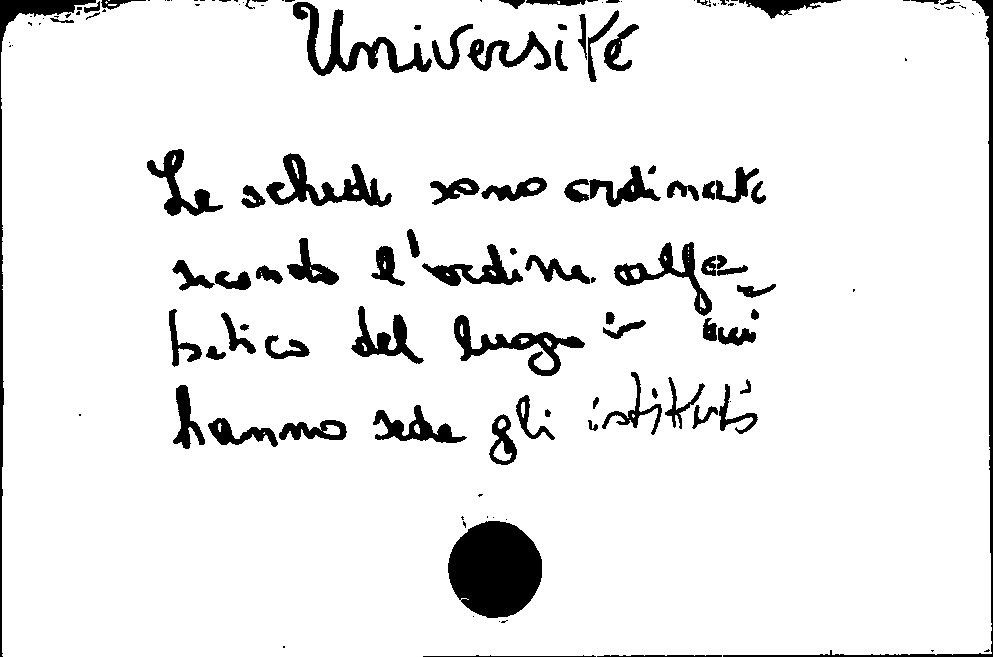 Université
Le schede sono ordinate
secondo l'ordine alfa-
betico del luogo in cui
hanno sede gli istituti